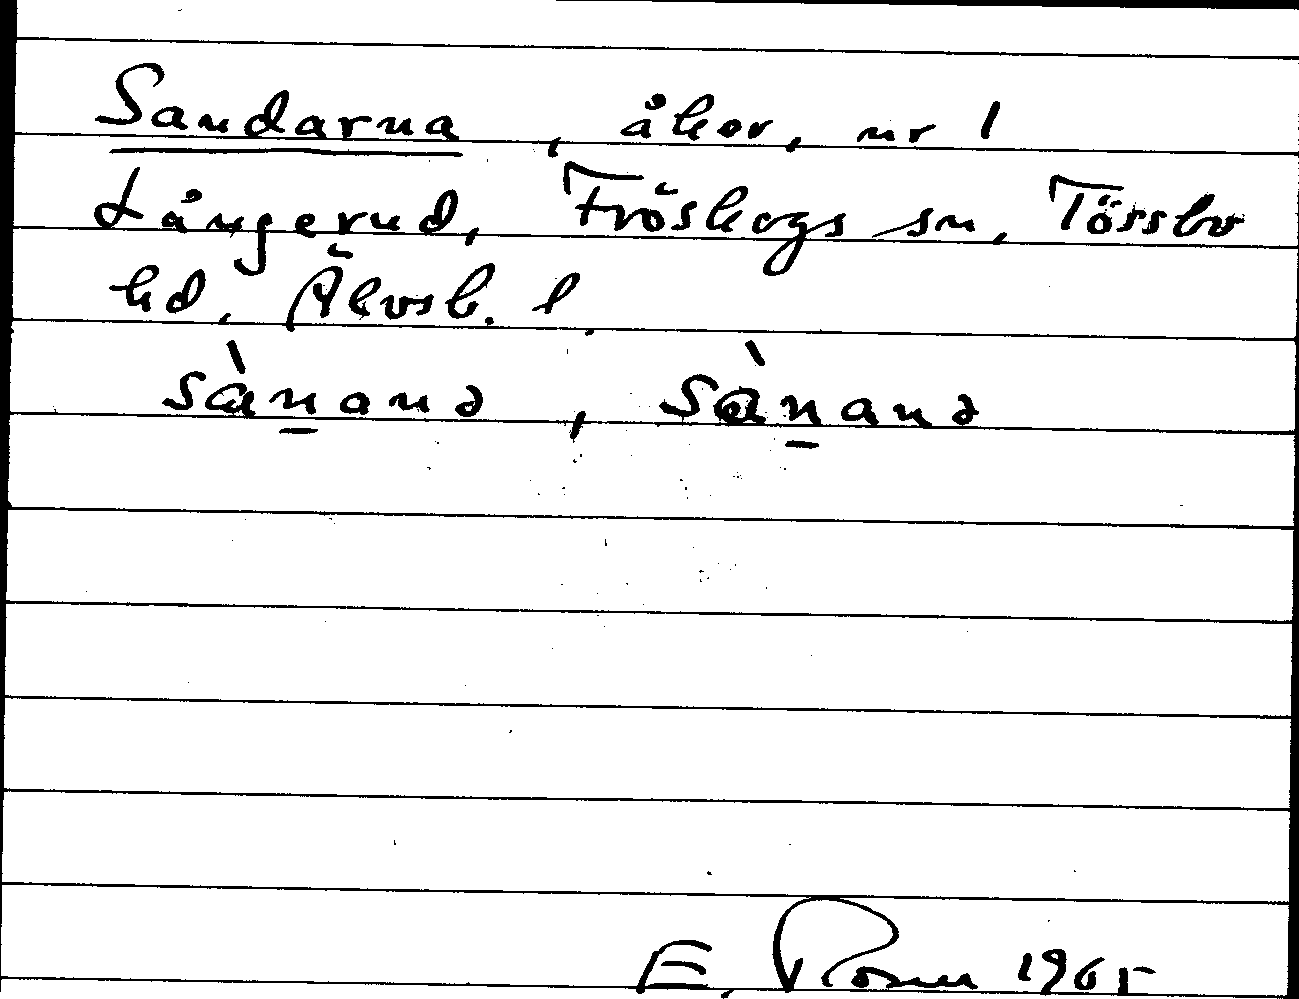 Sandarna, åker, nr 1
Långerud, Fröskogs sn, Tössbo
hd, Älvsb. l.
sànanə, sànanə
E. Rosén 1965